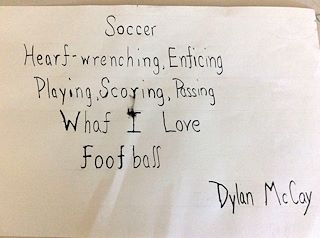 Soccer
Heart-wrenching, Enticing
Playing, Scoring, Passing
What I Love
Football
Dylan McCay